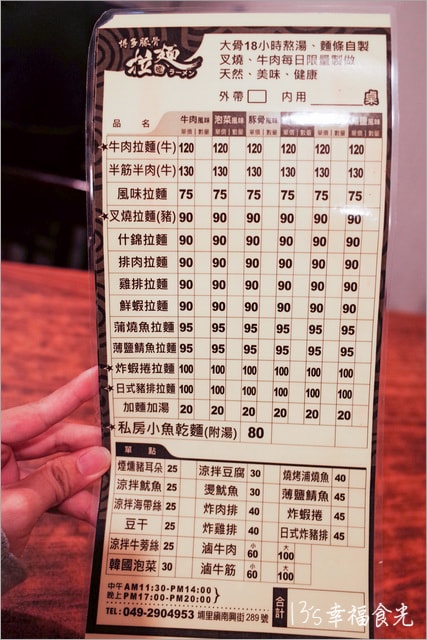 博多豚骨
拉麵
ラーメン
大骨18小時熬湯、麵條自製
叉燒、牛肉每日限量製做
天然、美味、健康
外帶 內用 桌
品名 牛肉風味 泡菜風味 豚骨風味 風味
單價 數量 單價 數量 單價 數量 單價 數量 單價 數量 單價 數量
★牛肉拉麵(牛) 120 120 120 120 120 120
半筋半肉(牛) 130 130 130 130 130 130
風味拉麵 75 75 75 75 75 75
★叉燒拉麵(豬) 90 90 90 90 90 90
什錦拉麵 90 90 90 90 90 90
排肉拉麵 90 90 90 90 90 90
雞排拉麵 90 90 90 90 90 90
鮮蝦拉麵 90 90 90 90 90 90
蒲燒魚拉麵 95 95 95 95 95 95
薄鹽鯖魚拉麵 95 95 95 95 95 95
★炸蝦捲拉麵 100 100 100 100 100 100
★日式豬排拉麵 100 100 100 100 100 100
加麵加湯 20 20 20 20 20 20
★私房小魚乾麵(附湯) 80
單點
煙燻豬耳朵 25 涼拌豆腐 30 燒烤蒲燒魚 40
涼拌魷魚 25 燙魷魚 30 薄鹽鯖魚 45
涼拌海帶絲 25 炸肉排 40 炸蝦捲 45
豆干 25 炸雞排 40 日式炸豬排 45
涼拌牛蒡絲 25 滷牛肉 小60 大100
韓國泡菜 30 滷牛筋 小60 大100
中午AM11:30-PM14:00
晚上PM17:00-PM20:00
合計
TEL:049-2904953 埔里鎮南興街289號
13's幸福食光